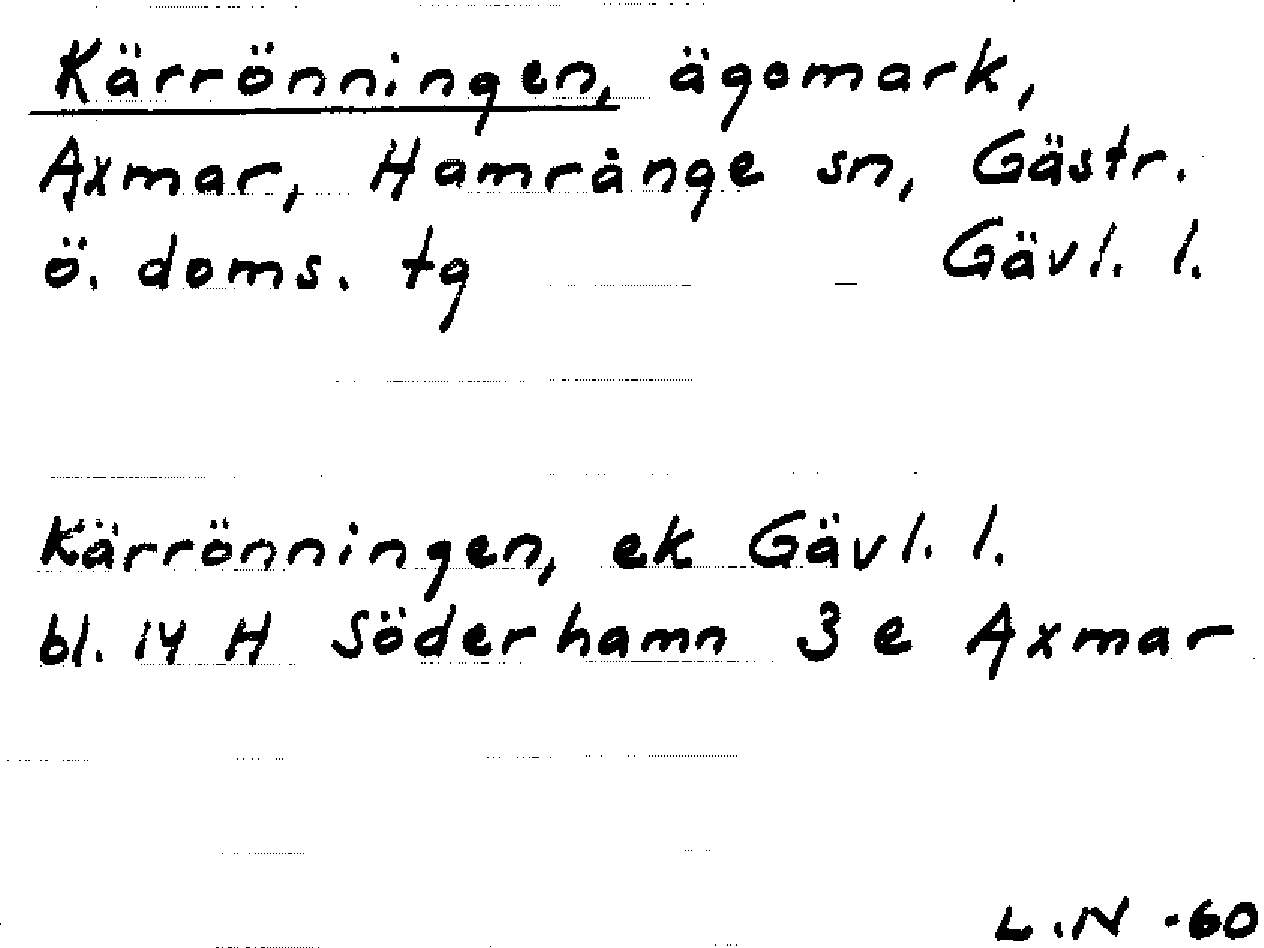 Kärrönningen, ägomark,
Axmar, Hamrånge sn, Gästr.
ö. doms. tg Gävl. l.
Kärrönningen, ek Gävl. l.
bl. 14 H Söderhamn 3 e Axmar
L.N -60